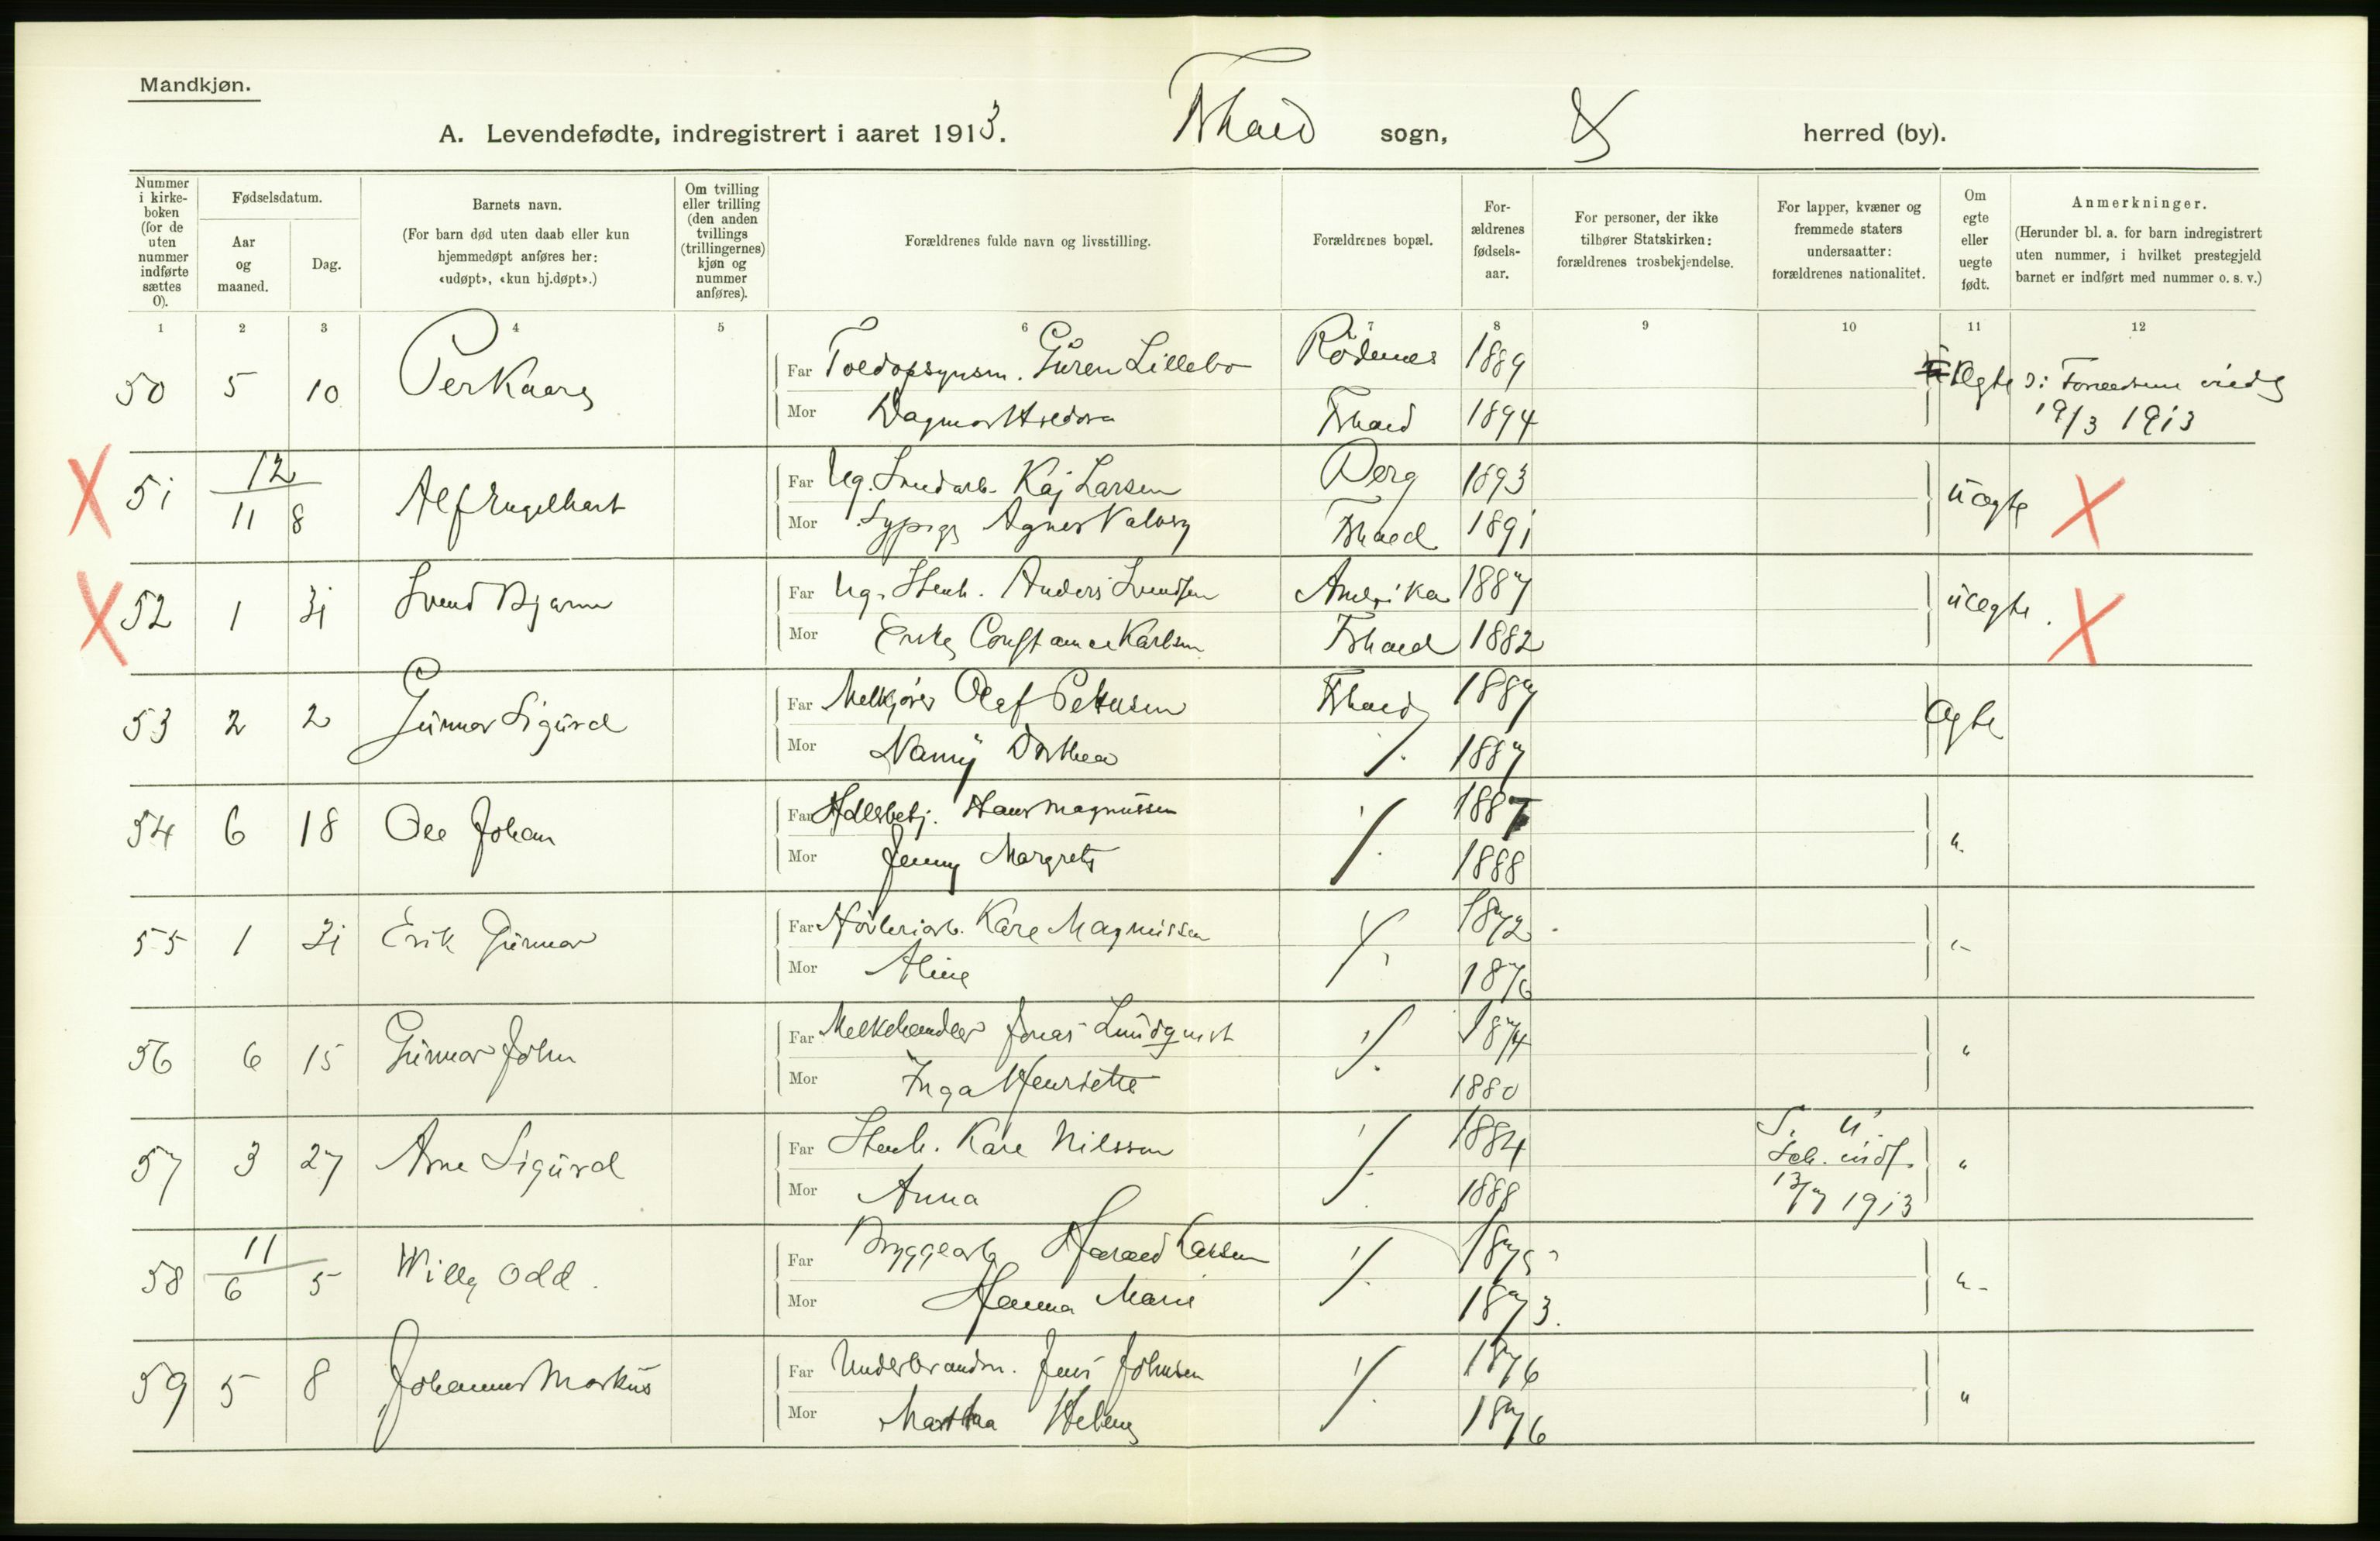 Mandkjøn.
A. Levendefødte, indregistrert i aaret 1913. Fkhald sogn, herred (by).
Nummer i kirkeboken (for de uten nummer indførte sættes 0).
Fødselsdatum.
Aar og maaned.
Dag.
Barnets navn.
(For barn død uten daab eller kun hjemmedøpt anføres her: «udøpt», «kun hj.døpt».)
Om tvilling eller trilling (den anden tvillings (trillingernes) kjøn og nummer anføres).
Forældrenes fulde navn og livsstilling.
Forældrenes bopæl.
Forældrenes fødselsaar.
For personer, der ikke tilhører Statskirken: forældrenes trosbekjendelse.
For lapper, kvæner og fremmede staters undersaatter: forældrenes nationalitet.
Om egte eller uegte født.
Anmerkninger.
(Herunder bl. a. for barn indregistrert uten nummer, i hvilket prestegjeld barnet er indført med nummer o. s. v.)
1 2 3 4 5 6 7 8 9 10 11 12
50 5 10 Per Kaare Far Toldopsynsm. Güren Lillebo Rödenes 1889 Ægte
Mor Dagmar Fkhald 1894 19/3 1913
X 51 12/11 8 Alf Engelhart Far Ug. Kaj Larsen Berg 1893 uægte X
Mor Sypige Agnes Valborg Fkhald 1891
X 52 1 31 Svend Bjarne Far Ug. Stenh. Anders Svendsen Amerika 1887 uægte. X
Mor Erika Constance Karlsen Fkhald 1882
53 2 2 Gunnar Sigurd Far Melkjører Olaf Petersen Fkhald 1887 Ægte
Mor Nanny Dorthea ./. 1887
54 6 18 Ole Johan Far Hdlsbetj. Hans Magnussen ./. 1887 "
Mor Jenny Margrete 1888
55 1 31 Erik Gunnar Far Høvleriarb. Karl Magnussen ./. 1872 "
Mor Aline 1876
56 6 15 Gunnar John Far Melkehandler Jonas Lundquist ./. 1874 "
Mor Inga Henriette 1880
57 3 27 Arne Sigurd Far Stenh. Karl Nilsson ./. 1884 S. U. "
Mor Anna 1888 13/7 1913
58 11/6 5 Willy Odd. Far Bryggearb. Harald Larsen ./. 1875 "
Mor Hanna Marie 1873.
59 5 8 Johannes Markus Far Underbrandm. Jens Johnsen ./. 1876 "
Mor Martha Helene 1876